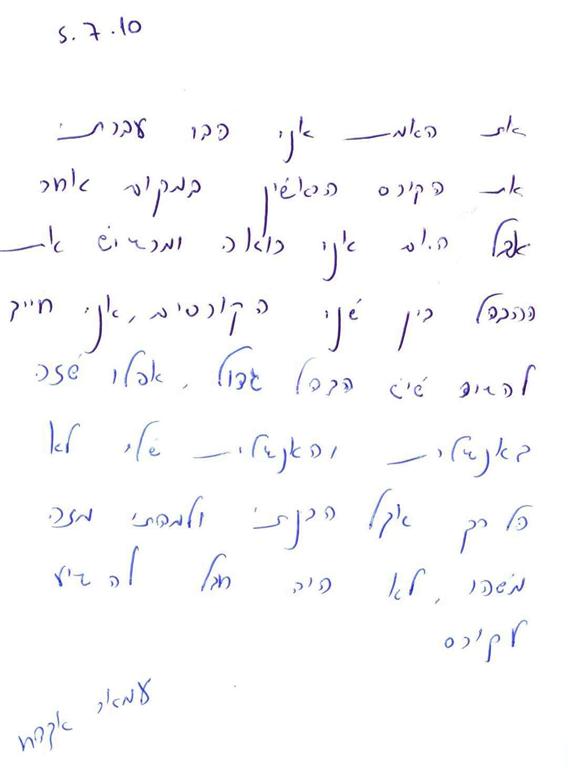 5.7.10
את האמת אני כבר עברתי
את הקורס הראשון במקום אחר
אבל היום אני רואה ומרגיש את
ההבדל בין שני הקורסים, אני חייב
להגיד שיש הבדל גדול, אפילו שזה
באנגלית והאנגלית שלי לא
כל כך אבל הבנתי ולמדתי מזה
משהו, לא היה חבל להגיע
לקורס